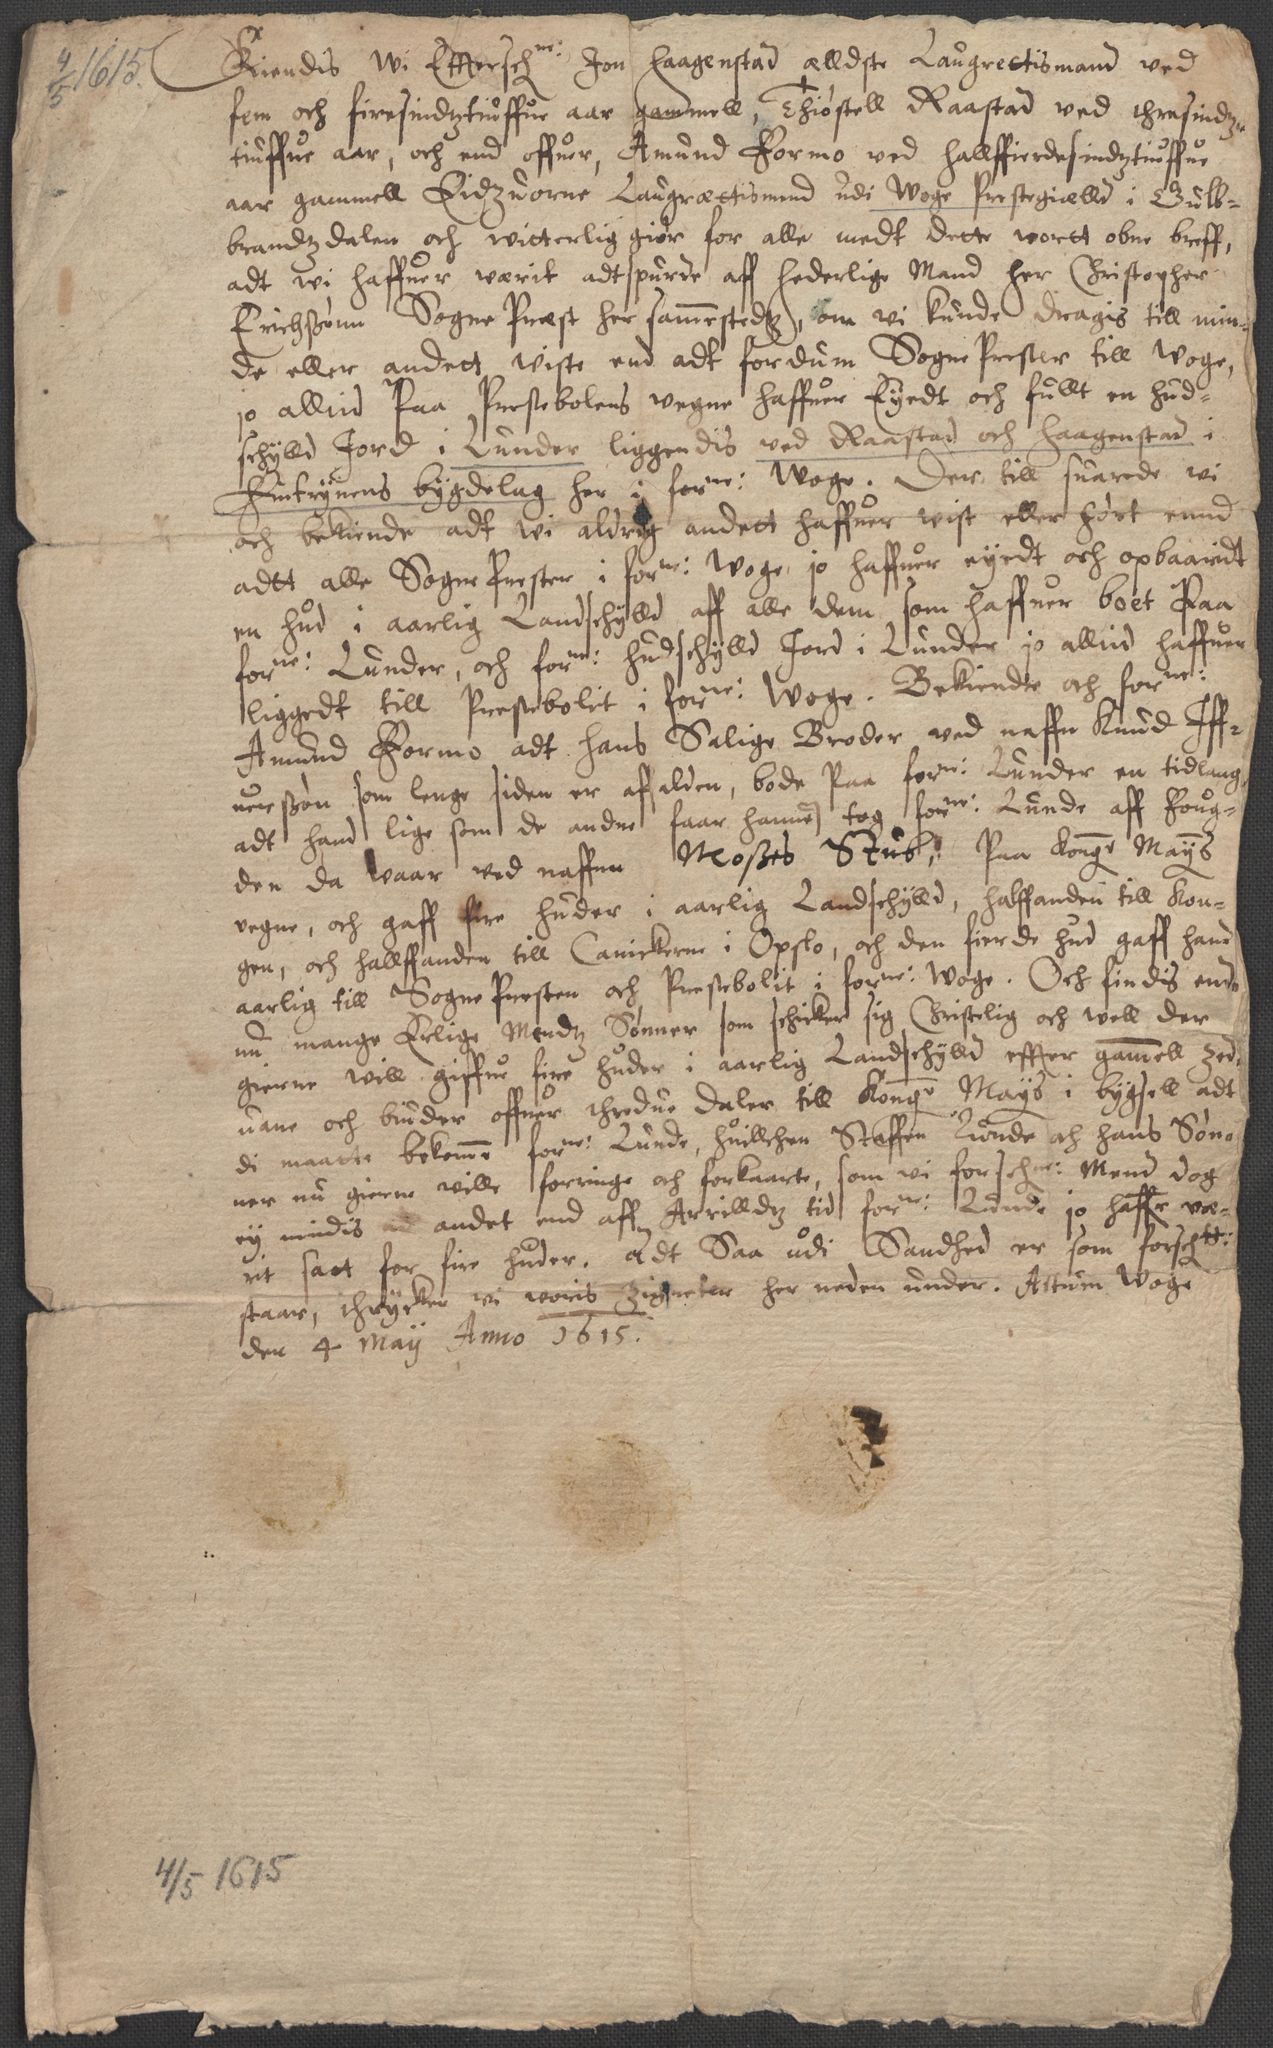 4/5 1615.
Kiendis wi Effterschne: Jon Haagenstad ælldste Laugrettismand ved
fem och firesindztiuffue aar gammell, Thiostell Raastad ved thresindz-
tiuffue aar, och end offuer, Amund Formo ved hallffierdesindztiuffue
aar gammell Eidzuorne Laugrættismend udi Woge Prestegielld i Gulb-
brandzdalen och witterlig giør for alle medt dette wortt obne breff,
adt wi haffuer wærit adtspurde aff hederlige Mand her Christopher
Erichssønn Sogne Præst her sammestedtz, om vi kunde dragis till min-
de eller andett wiste end adt fordum Sogne Prester till Woge,
jo alltid Paa Prestebolens vegne haffuer Eyedt och fullt en hud-
schylld Jord i Lunder liggendis ved Raastad och Haagenstad i
bygdelag her i forne: Woge. Der till suarede vi
och bekiende adt wi aldrig andett haffuer wist eller hørt ennd
adtt alle Sogne Prester i forne: Woge jo haffuer eyedt och opbaaridt
en hud i aarlig Landschylld aff alle dem som haffuer boet Paa
forne: Lunder, och forne: hudschylld Jord i Lunder jo alltid haffuer
liggedt till Prestebolet i forne: Woge. Bekiendte och forne:
Amund Formo adt hans Salige Broder ved naffn Knud Iff-
uerssøn som lenge siden er affalden, bode Paa forne: Lunder en tidlang,
adt hand lige som de andre faar hannem tog forne: Lunde aff Foug-
den da waar ved naffnn Moses Stub, Paa Konge Mays
vegne, och gaff fire huder i aarlig Landschylld, halffanden till Kon-
gen, och hallffanden till Canickerne i Opslo, och den fierde hud gaff hand
aarlig till Sogne Presten och Prestebolit i forne: Woge. Och findis end
nu mange Erlige Mendz Sønner som schicker sig Christelig och well der
gierne will giffue fire huder i aarlig Landschylld effter gamell zed-
uane och biuder offuer thredue daler till Konge Mays i bygsell adt
di maatte bekomme forne: Lunde, huillchen Steffen Lunde och hans Søn-
ner nu gierne wille forringe och forkaarte, som vi forschne: Mend dog
ey mindis andet end aff Arrilldz tid forne: Lunde jo haffr væ-
rit satt for fire huder. Adt Saa udi Sandhed er som forschtt:
staar, thrycker vi woris Zigneter her neden under. Actum Woge
den 4 Maij Anno 1615.
4/5 1615